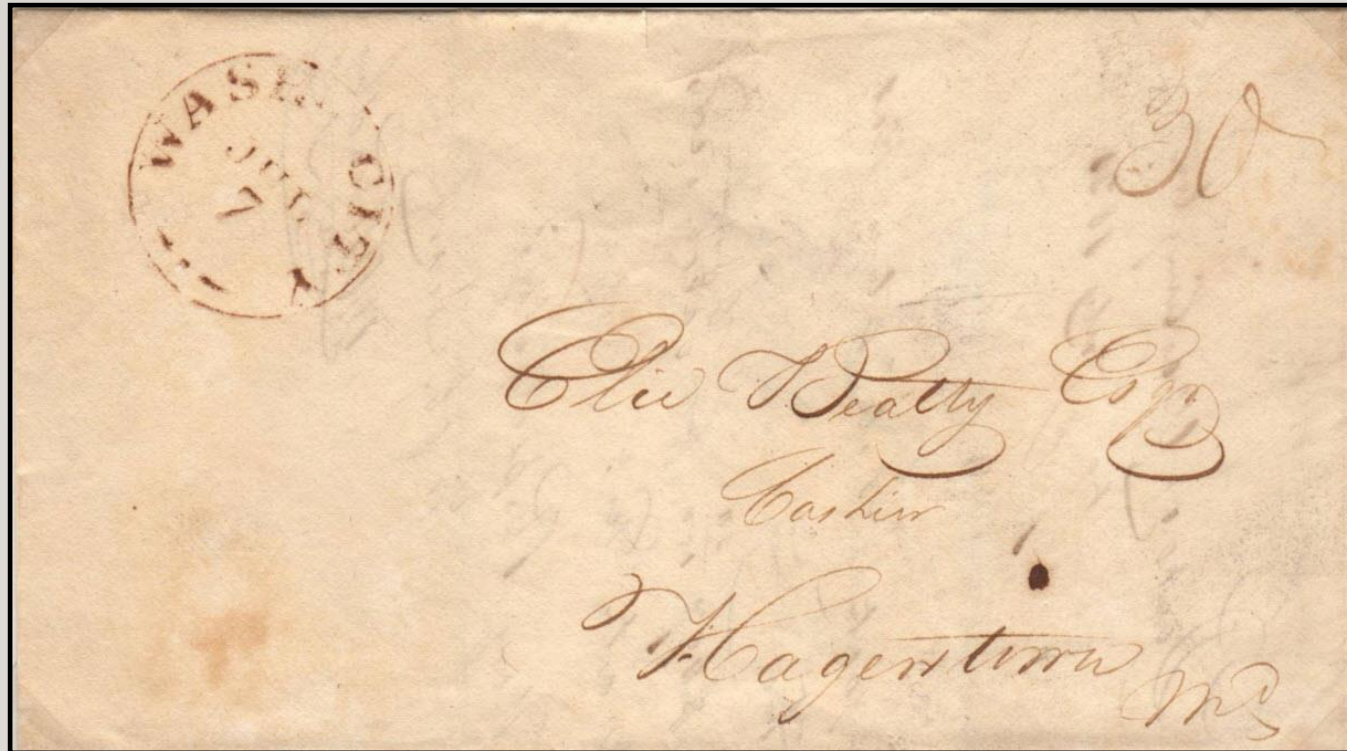 WASH. CITY
JUL
7
30
Elie Beatty Esqr
Cashier
Hagerstown
Md